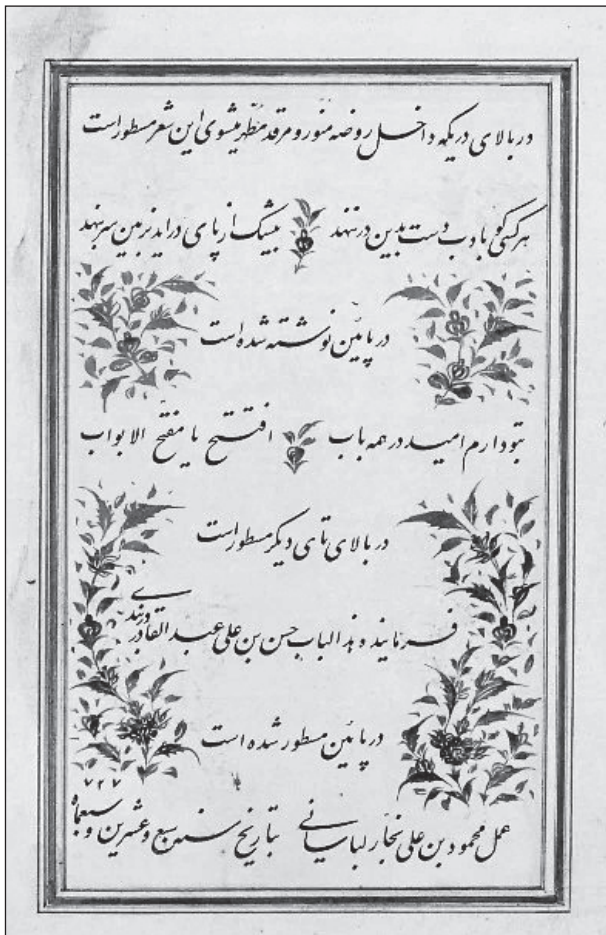 در بالای دریکه داخل روضه منور و مرقد مطهر میشوی این شعر مسطور است
هر کسی کو بادب دست بدین در ننهد بیشک از پای در اید بزمین سر بنهد
در پائین نوشته شده است
بتو دارم امید در همه باب افتتح یا مفتح الابواب
در بالای تای دیگر مسطور است
فرمایندهٔ هذالباب حسن بن علی عبد القادر
در پائین مسطور شده است
۷۲۷
عمل محمود بن علی نجار بتاریخ سنه سبع و عشرین و سبعمائه